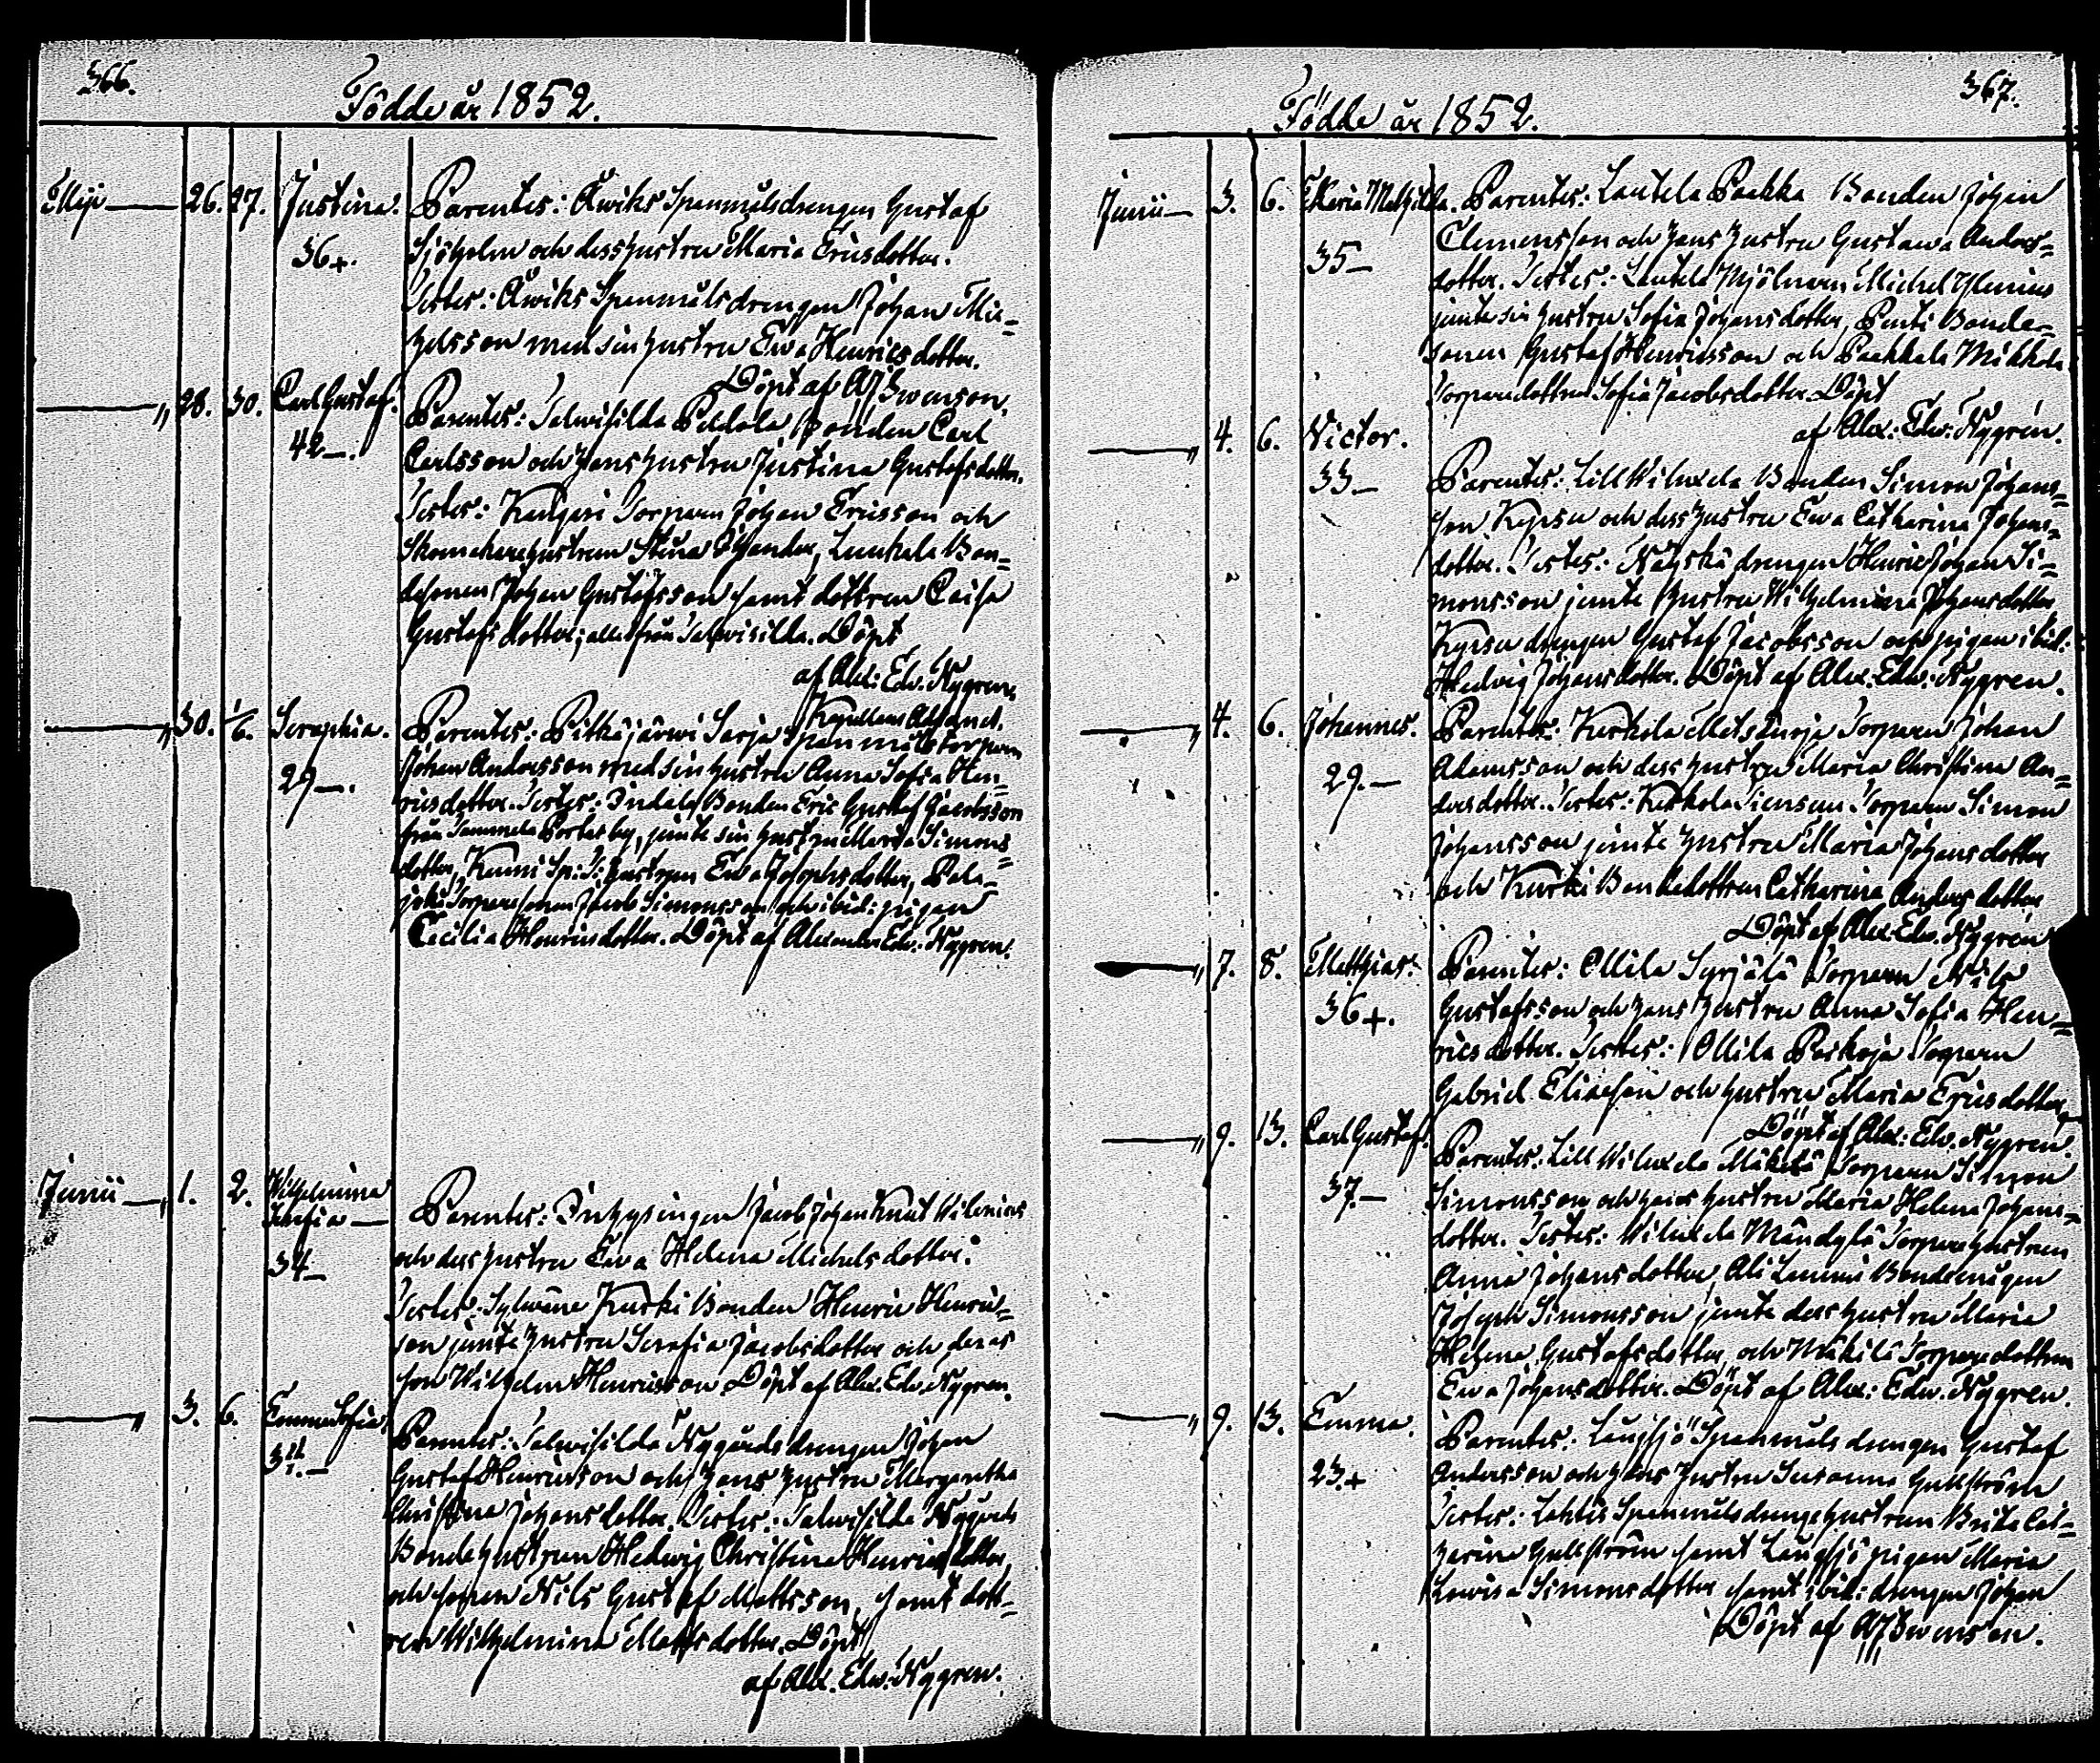 366.
Födde år 1852.
Maji — 26. 27. Justina. Parentes: Qwiks Spanmålsdrengen Gustaf
36+. Sjöholm och dess hustru Maria Ericsdotter.
Testes: Qwiks Spanmålsdrengen Johan Mic=
helsson med sin hustru Ewa Henricsdotter.
Döpt af Swenson.
— „ 28. 30. Carl Gustaf. Parentes: Talwisilda Bonden Carl
42—. Carlsson och hans hustru Justina Gustafsdotter.
Testes: Torparen Johan Ericsson och
Skomakarehustrun Stina Bon=
desonen Johan Gustafsson samt dottren Caisa
Gustafsdotter; alla från Talwisilda. Döpt
af Alex: Edv. Nygren,
Kapellans Adjunct.
— „ 30. 1/6. Seraphia. Parentes: Pitkäjärwi Sarja Spanmålstorparen
29—. Johan Andersson med sin hustru Anna Sofia Hen=
ricsdotter. Testes: Bonden Eric Gustaf Jacobsson
från Sammola Portas by, jemte sin hustru Maria Simons=
dotter, Sp: T: hustrun Ewa Josephsdotter,
Torparesonen Jacob Simonsson och ibid: pigan
Cecilia Henricsdotter. Döpt af Alexander Edv: Nygren.
Junii — „ 1. 2. Wilhelmina
Serafia — Parentes: Inhysingen Jacob Johan Knut Wilenius
34— och dess hustru Ewa Helena Michelsdotter.
Testes: Kurki Bonden Henric Henrics=
son jemte hustru Serafia Jacobsdotter och deras
son Wilhelm Henricsson. Döpt af Alex. Edv. Nygren.
— „ 3. 6. Emma Sofia. Parentes: Talwisilda Nygårds drengen Johan
Gustaf Henricsson och hans hustru Margaretha
Christina Johansdotter. Testes: Talwisilda Nygårds
Bondehustrun Hedwig Christina Henricsdotter,
och sonen Nils Gustaf Mattsson, samt dott=
ren Wilhelmina Mattsdotter. Döpt
af Alex. Edv. Nygren.
367.
Födde år 1852.
Junii — 3. 6. Maria Mathilda. Parentes: Lautela Paakka Bonden Johan
35— Clemensson och hans hustru Gustawa Anders=
dotter. Testes: Lautela Mjölnaren Michel Ylenius
jemte sin hustru Sofia Johansdotter, Penti Bonde=
sonen Gustaf Henricsson och Mikkola
Torparedottren Sofia Jacobsdotter. Döpt
af Alex: Edv: Nygrén.
— „ 4. 6. Victor. Parentes: Lill Wiluxela Bonden Simon Johans=
33— son Kyrsu och dess hustru Ewa Catharina Johans=
dotter. Testes: drengen Henric Johan Si=
monsson jemte hustru Wilhelmina Johansdotter
Kyrsu drengen Gustaf Jacobsson och pigan ibid:
Hedvig Johansdotter. Döpt af Alex: Edv: Nygren.
— „ 4. 6. Johannes. Parentes: Kurkola Torparen Johan
29.— Adamsson och dess hustru Maria Christina An=
dersdotter. Testes: Kurkola Torparen Simon
Johansson jemte hustru Maria Johansdotter
och Kurki Bondedottren Catharina Andersdotter
Döpt af Alex: Edv. Nygren
— „ 7. 8. Matthias. Parentes: Ollila Syrjälä Torparen Nils
36+. Gustafsson och hans hustru Anna Sofia Hen=
ricsdotter. Testes: Ollila Torparen
Gabriel Eliasson och hustru Maria Ericsdotter
Döpt af Alex: Edv. Nygren.
— „ 9. 13. Carl Gustaf. Parentes: Lill Wiluxela Mäkilä Torparen Simon
37.— Simonsson och hans hustru Maria Helena Johans=
dotter. Testes: Wiluxela Torparehustrun
Anna Johansdotter, Ali Lemmi Bondemågen
Joseph Simonsson jemte dess hustru Maria
Helena Gustafsdotter, och Mäkilä Torparedottren
Ewa Johansdotter. Döpt af Alex: Edv. Nygren.
— „ 9. 13. Emma. Parentes: Långsjö Spanmåls drengen Gustaf
23.+ Andersson och hans hustru Susanna Gullström
Testes: Lahtis Spanmålsdrengehustrun Brita Cat=
harina Gullström samt Långsjö pigan Maria
Lowisa Simonsdotter samt ibid: drengen Johan
Döpt af Swenson.